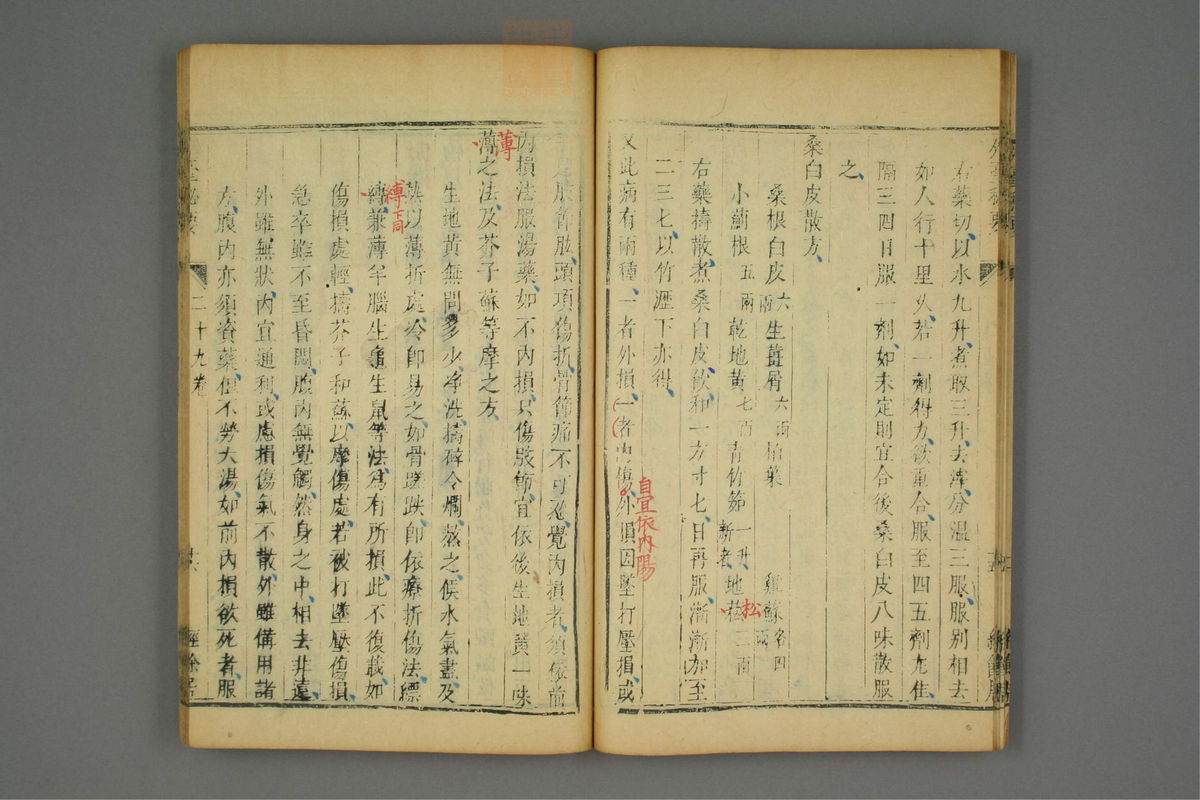 右藥切以水九升煮取三升去滓分溫三服服別相去
如人行十里久若一劑得力欲重合服至四五劑尤佳
隔三四日服一劑如未定則宜合後桑白皮八味散服
之
桑白皮散方
桑根白皮六兩 生薑屑六兩 栢葉 雞蘇各四兩
小薊根五兩 乾地黃七兩 青竹茹一升新者 地菘三兩
松
右藥擣散煮桑白皮飲和一方寸匕日再服漸漸加至
二三匕以竹瀝下亦得
又此病有兩種一者外損一者內傷外損因墜打壓損或
自宜依內陽
手足肢臂肱頭項傷折骨節痛不可忍覺內損者須依前
內損法服湯藥如不內損只傷肢節宜依後生地黃一味
薄
薄之法及芥子蘇等摩之方
生地黃無問多少淨洗擣碎令爛蒸之候水氣盡及
熱以薄折處冷即易之如骨蹉跌即依療折傷法縹
縛下同
縛兼薄羊腦生龜生鼠等法為有所損此不復載如
傷損處輕擣芥子和蘇以摩傷處若被打墜壓傷損
急卒雖不至昏悶腹內無覺觸然身之中相去非遠
外雖無狀內宜通利或慮損傷氣不散外雖備用諸
方腹內亦須資藥但不勞大湯如前內損欲死者服
二十九卷
經餘居